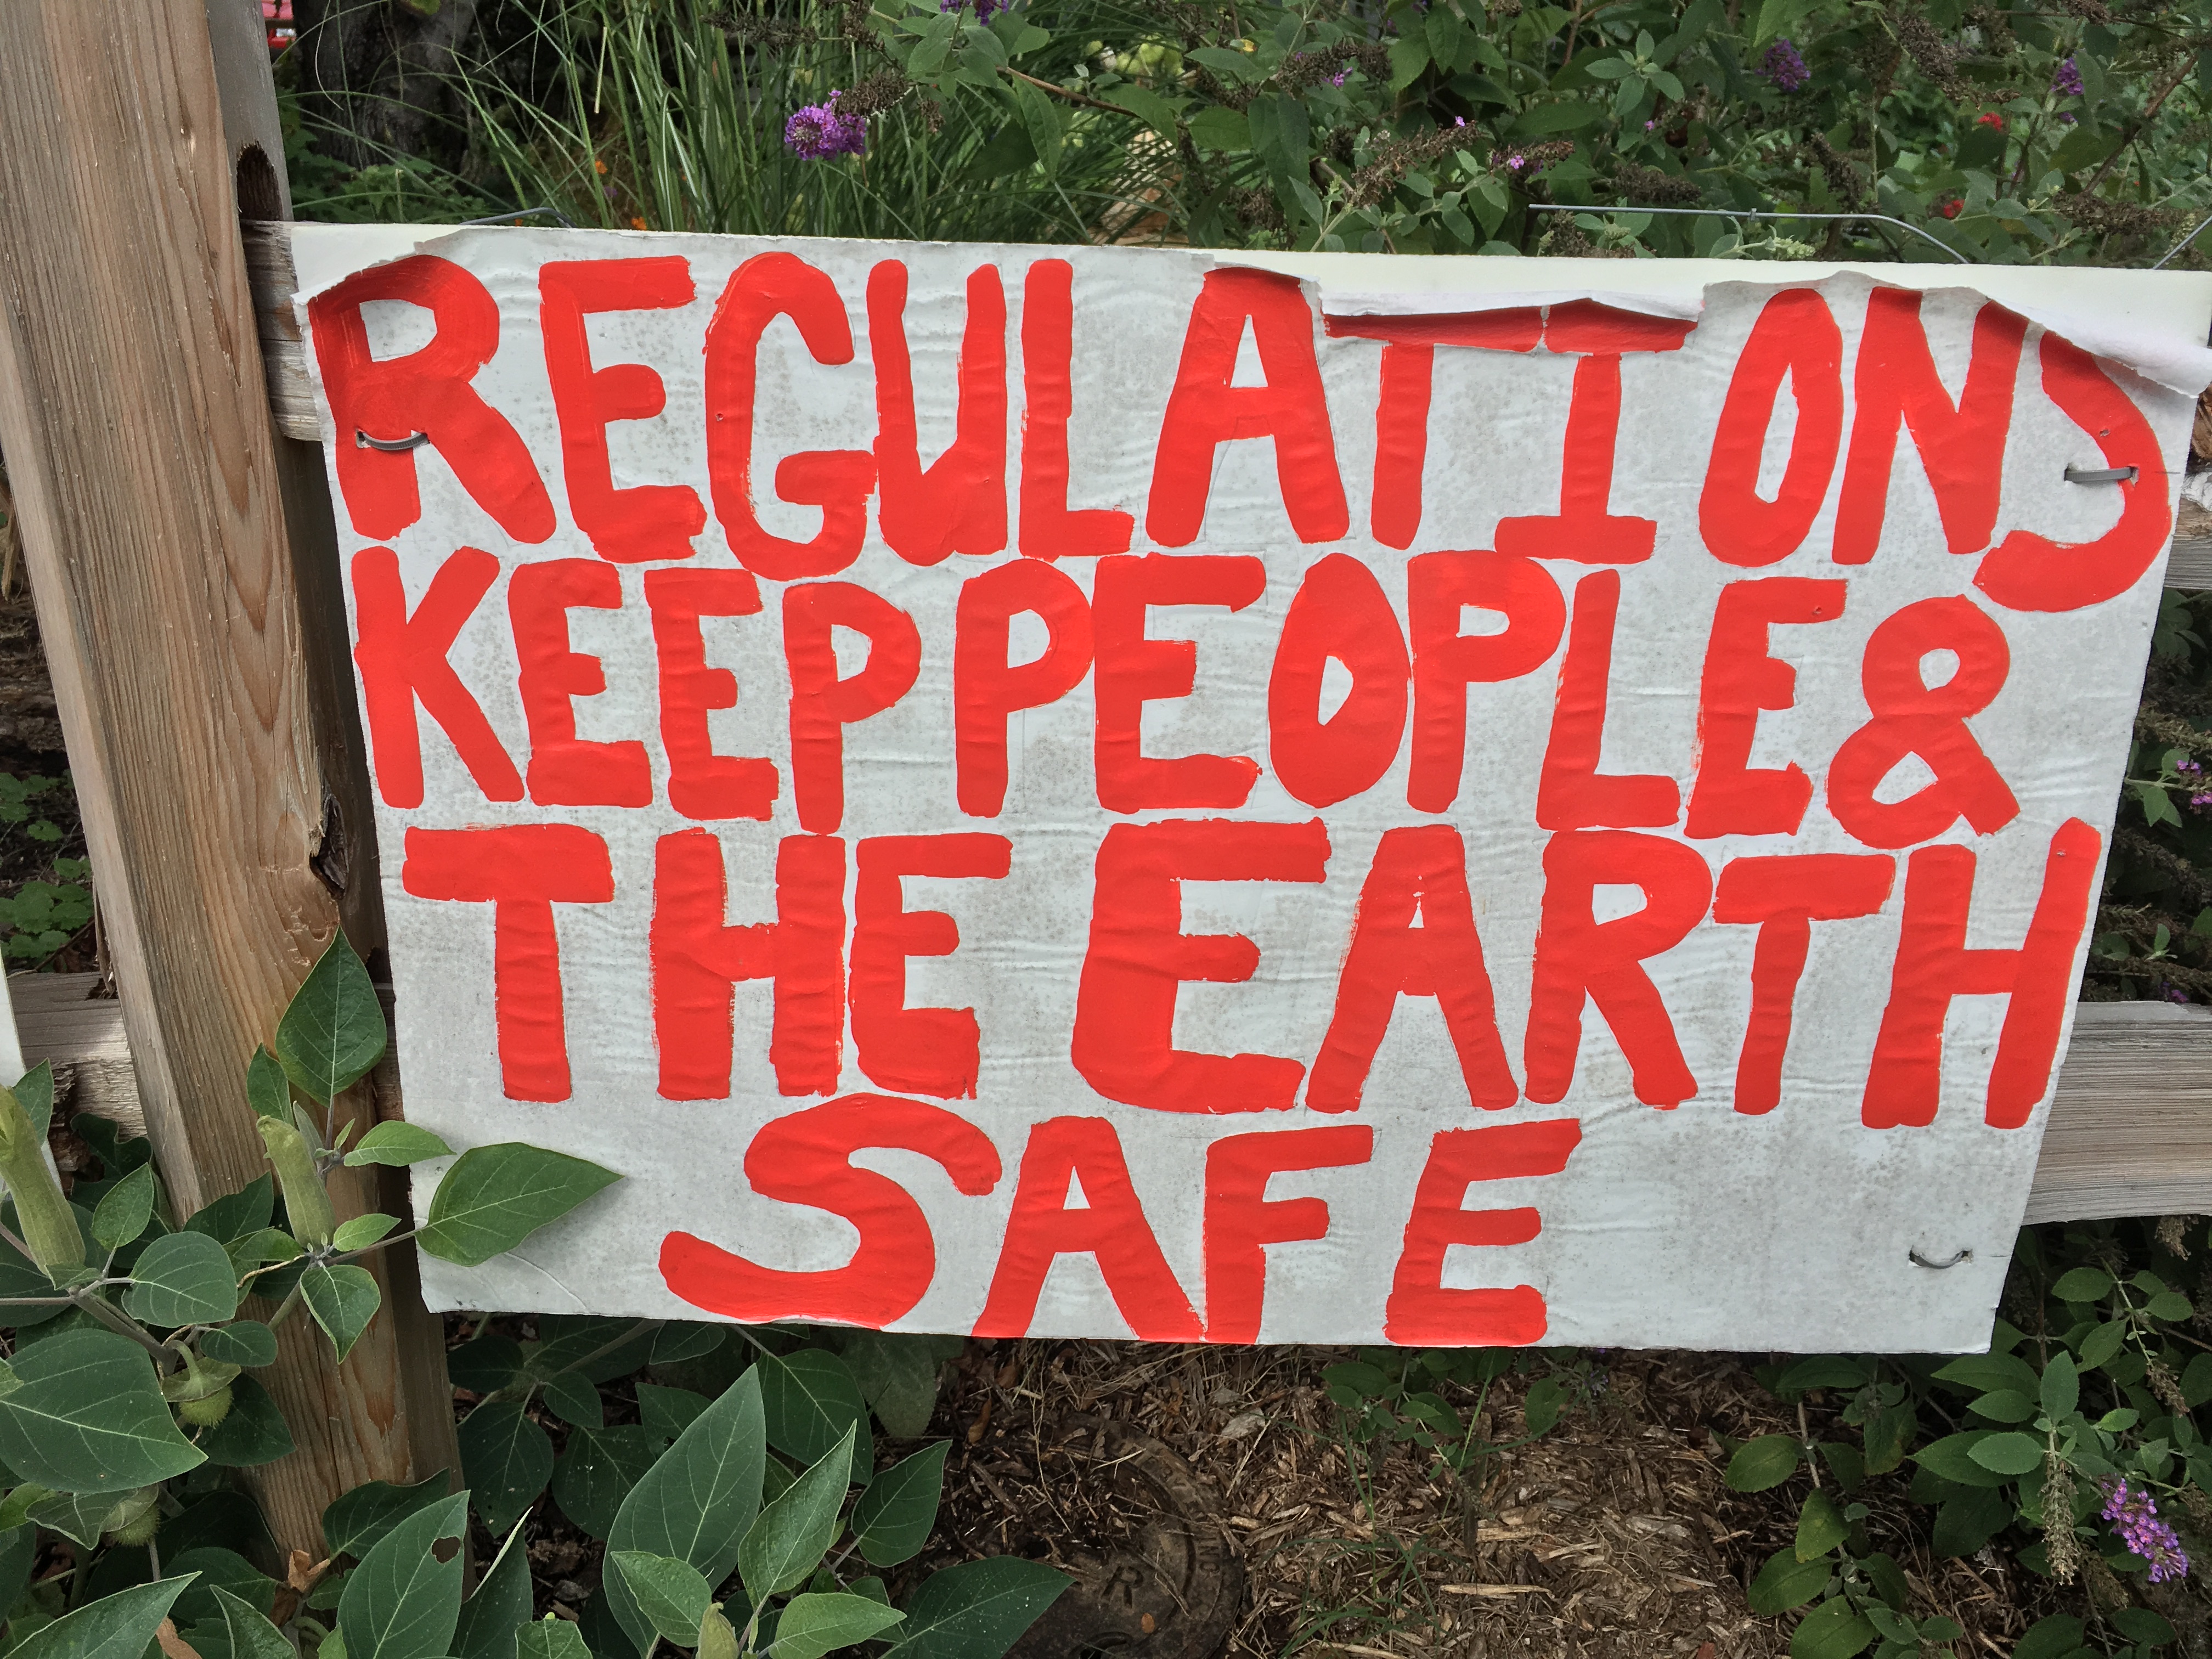 REGULATIONS
KEEP PEOPLE &
THE EARTH
SAFE